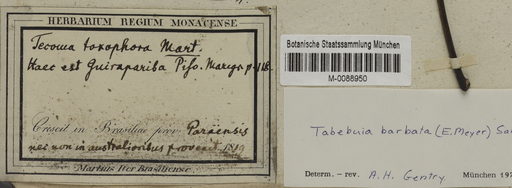 HERBARIUM REGIUM MONACENSE.
Tecoma toxophora Mart.
Haec est Guirapariba Piso. Marcgr. p. 118.
Crescit in Brasiliae prov. Paraensis
nec non in australioribus provenit. 1819
Martius Iter Brasiliense.
Botanische Staatssammlung München
M-0088950
Tabebuia barbata (E. Meyer) San
Determ. – rev. A. H. Gentry München 197